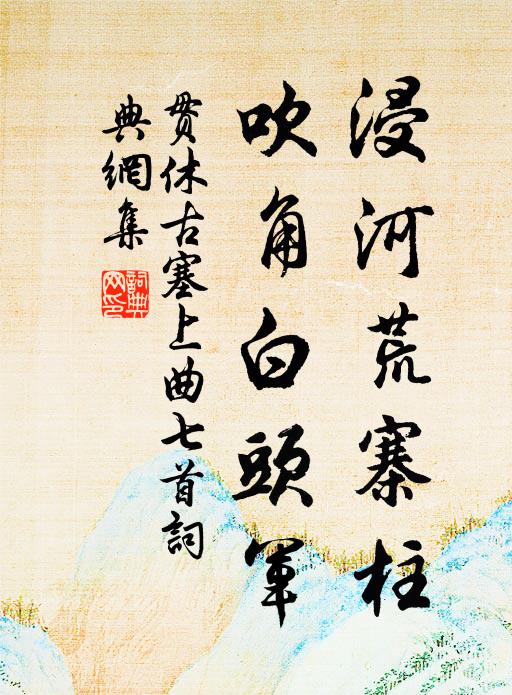 浸河荒寨柱
吹角白頭軍
貫休古塞上曲七首詞
典網集
詞典網印